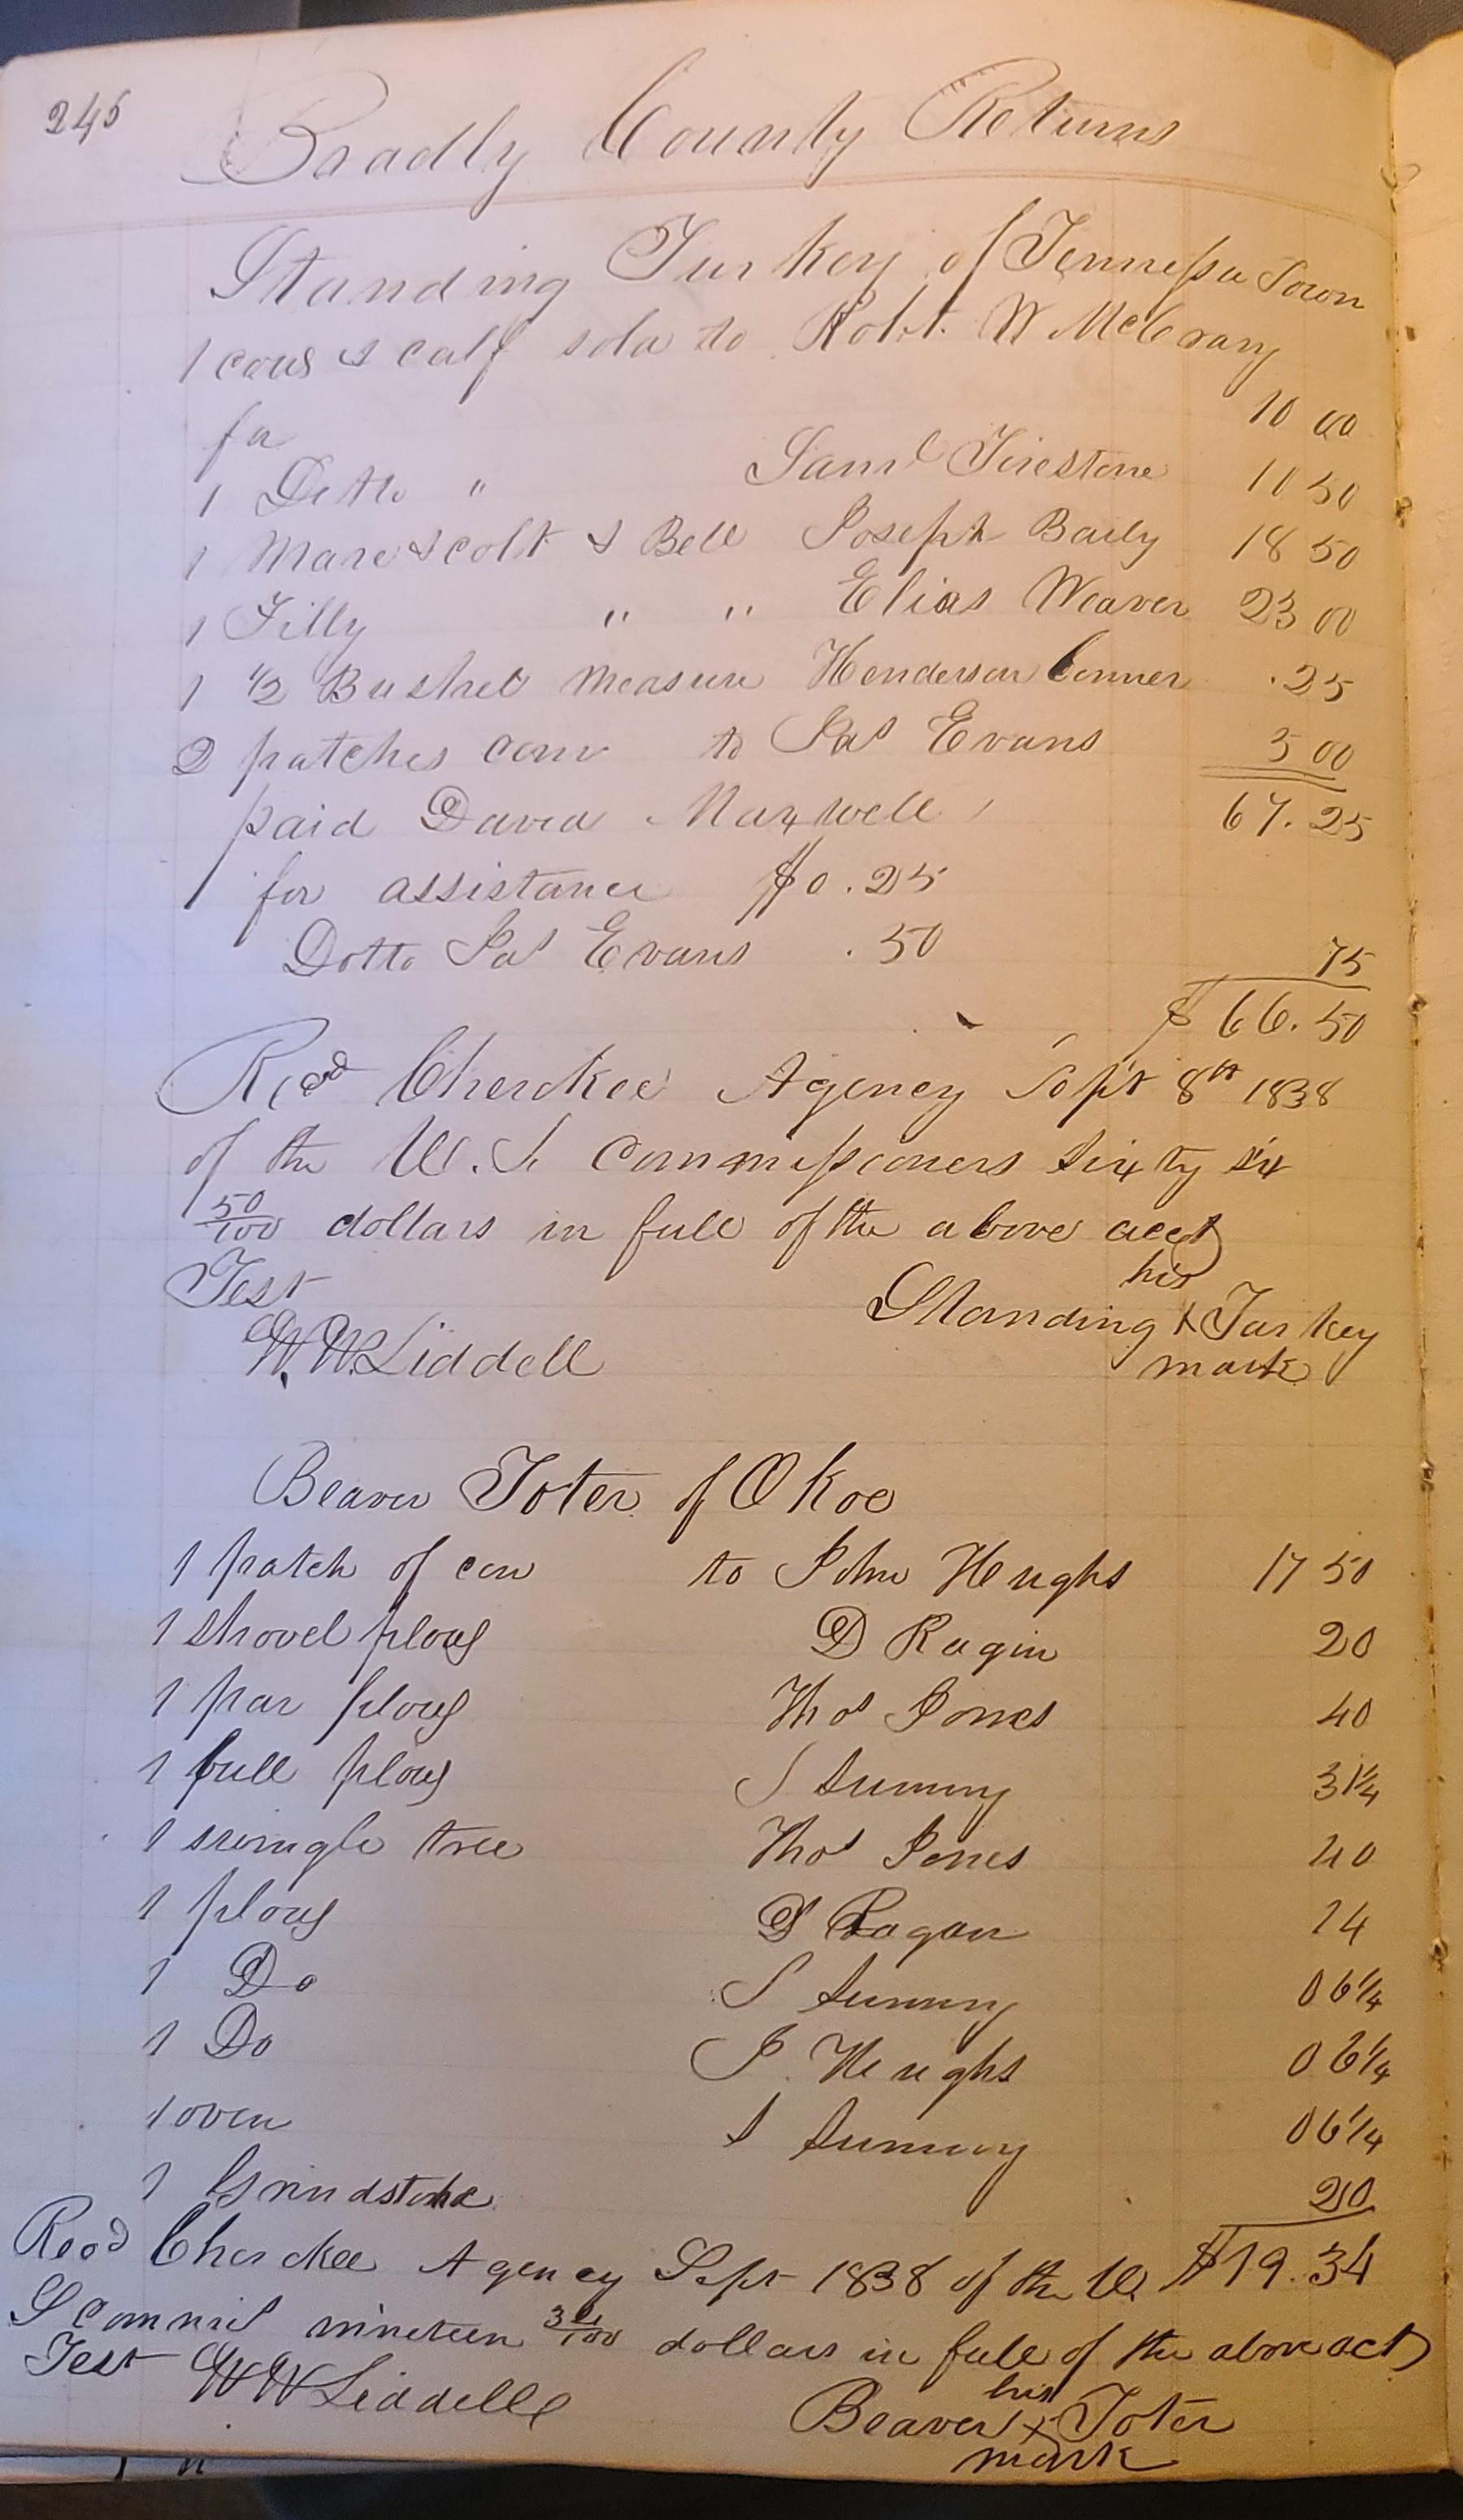 245
Bradly County Returns
Standing Turkey of Tennessee Town
1 cow & calf sold to Robt. W McCrary
for 10 00
1 Ditto " Saml Firestone 10 50
1 Mare & colt & Bell Joseph Baily 18 50
1 Filly " " Elias Weaver 23 00
1 1/2 Bushel measure Henderson Conner .25
2 patches corn to Jas Evans 5 00
paid David Maxwell 67.25
for assistance $0.25
Dotto Jas Evans .50 75
$66.50
Recd Cherokee Agency Sept 8th 1838
of the U.S. Commissioners sixty six
50/100 dollars in full of the above acct
Test his
W.W. Liddell Standing X Turkey
mark
Beaver Toter of Okoe
1 patch of corn to John Heughs 17 50
1 shovel plow D Ragin 20
1 par plow Thos Jones 40
1 bull plow J Summy 31 1/4
1 swingle tree Thos Jones 40
1 plow D Ragan 14
1 Do J Summy 06 1/4
1 Do J. Heughs 06 1/4
1 oven J Summy 06 1/4
1 Grindstone 20
Recd Cherokee Agency Sept 1838 of the U. $19.34
S Commis nineteen /100 dollars in full of the above act
Test W W Liddell his
Beaver X Toter
mark